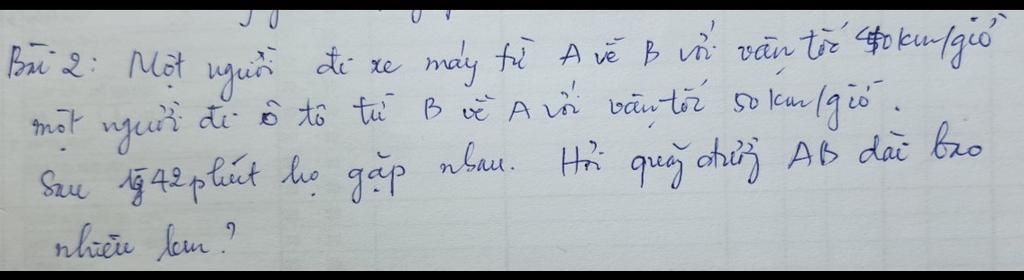 Bài 2: Một người đi xe máy từ A về B với vận tốc 40km/giờ
một người đi ô tô từ B về A với vận tốc 50km/giờ.
Sau 1g 42phút họ gặp nhau. Hỏi quãng đường AB dài bao
nhiêu km?